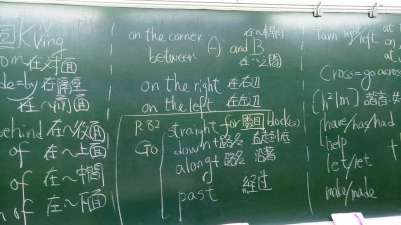 Ving
om 在~對面
de=by 在旁邊
在~前面
behind 在~後面
of 在~上面
of 在~中間
of 在~下面
on the corner 在~轉角
between (A) and B
在~之間
on the right 在右边
on the left 在左边
P.82
Go straight for 數目 block(s)
down+路名 直走到底
along+路名 沿著
past 經過
Turn right/left at
Cross=go across
(have/has/had
help
let/let
make/made